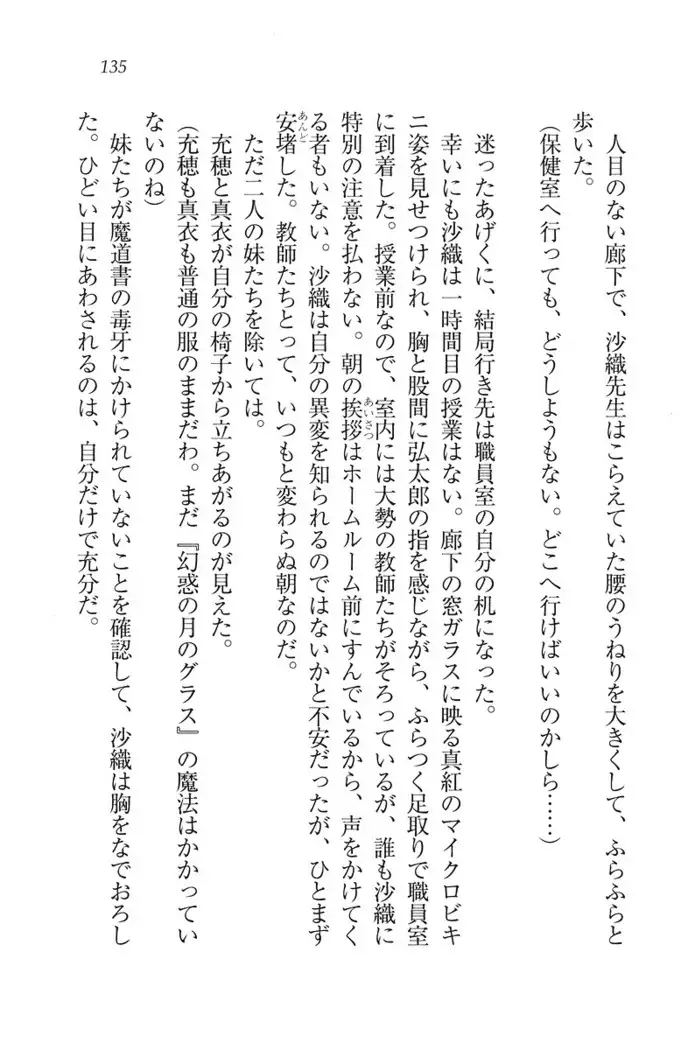 135
人目のない廊下で、沙織先生はこらえていた腰のうねりを大きくして、ふらふらと
歩いた。
(保健室へ行っても、どうしようもない。どこへ行けばいいのかしら……)
迷ったあげくに、結局行き先は職員室の自分の机になった。
幸いにも沙織は一時間目の授業はない。廊下の窓ガラスに映る真紅のマイクロビキ
ニ姿を見せつけられ、胸と股間に弘太郎の指を感じながら、ふらつく足取りで職員室
に到着した。授業前なので、室内には大勢の教師たちがそろっているが、誰も沙織に
特別の注意を払わない。朝の挨拶はホームルーム前にすんでいるから、声をかけてく
あいさつ
る者もいない。沙織は自分の異変を知られるのではないかと不安だったが、ひとまず
安堵した。教師たちとって、いつもと変わらぬ朝なのだ。
あんど
ただ二人の妹たちを除いては。
充穂と真衣が自分の椅子から立ちあがるのが見えた。
(充穂も真衣も普通の服のままだわ。まだ『幻惑の月のグラス』の魔法はかかってい
ないのね)
妹たちが魔道書の毒牙にかけられていないことを確認して、沙織は胸をなでおろし
た。ひどい目にあわされるのは、自分だけで充分だ。